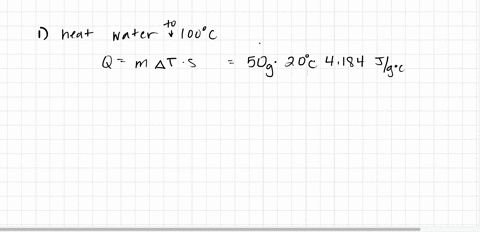 1) heat water to 100°C
Q = m ΔT · s = 50g · 20°C 4.184 J/g°C